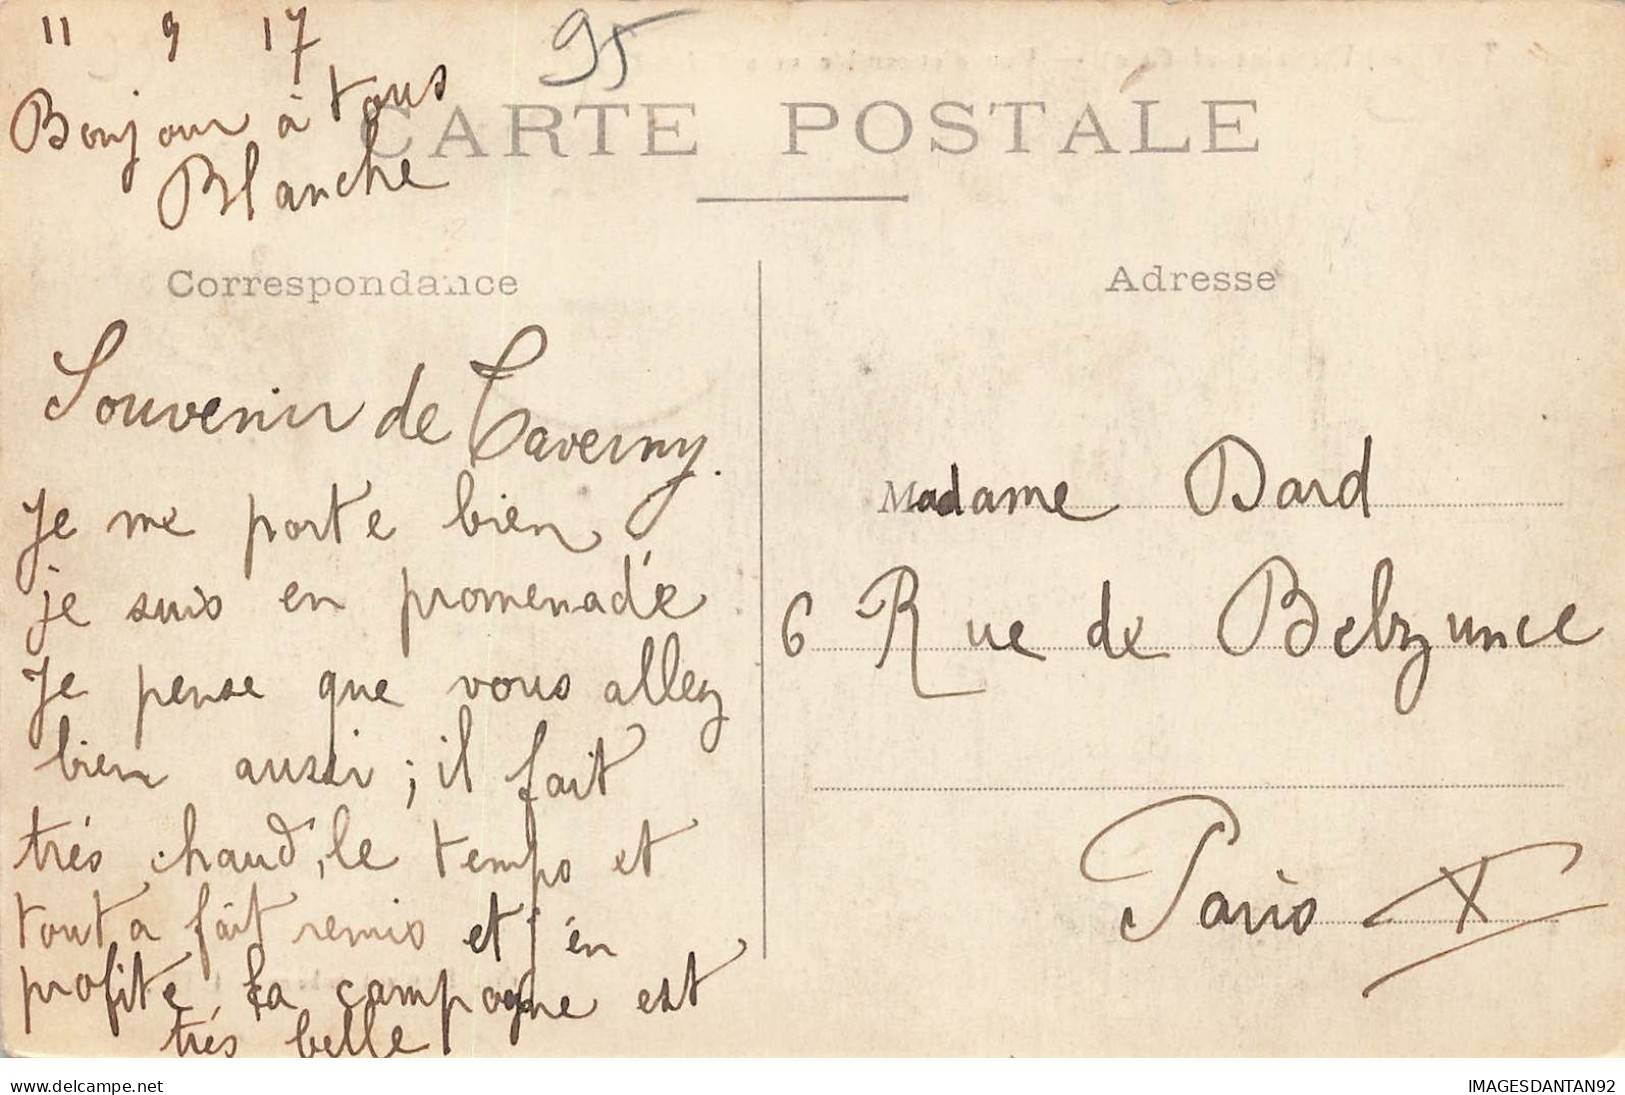 11 9 17
95
Bonjour à tous
Blanche
CARTE POSTALE
Correspondance
Adresse
Souvenir de Taverny.
Je me porte bien
je suis en promenade
Je pense que vous allez
bien aussi ; il fait
trés chaud, le temps est
tout a fait remis et j'en
profite. La campagne est
trés belle
Madame Dard
6 Rue de Belzunce
Paris X
www.delcampe.net
IMAGESDANTAN92